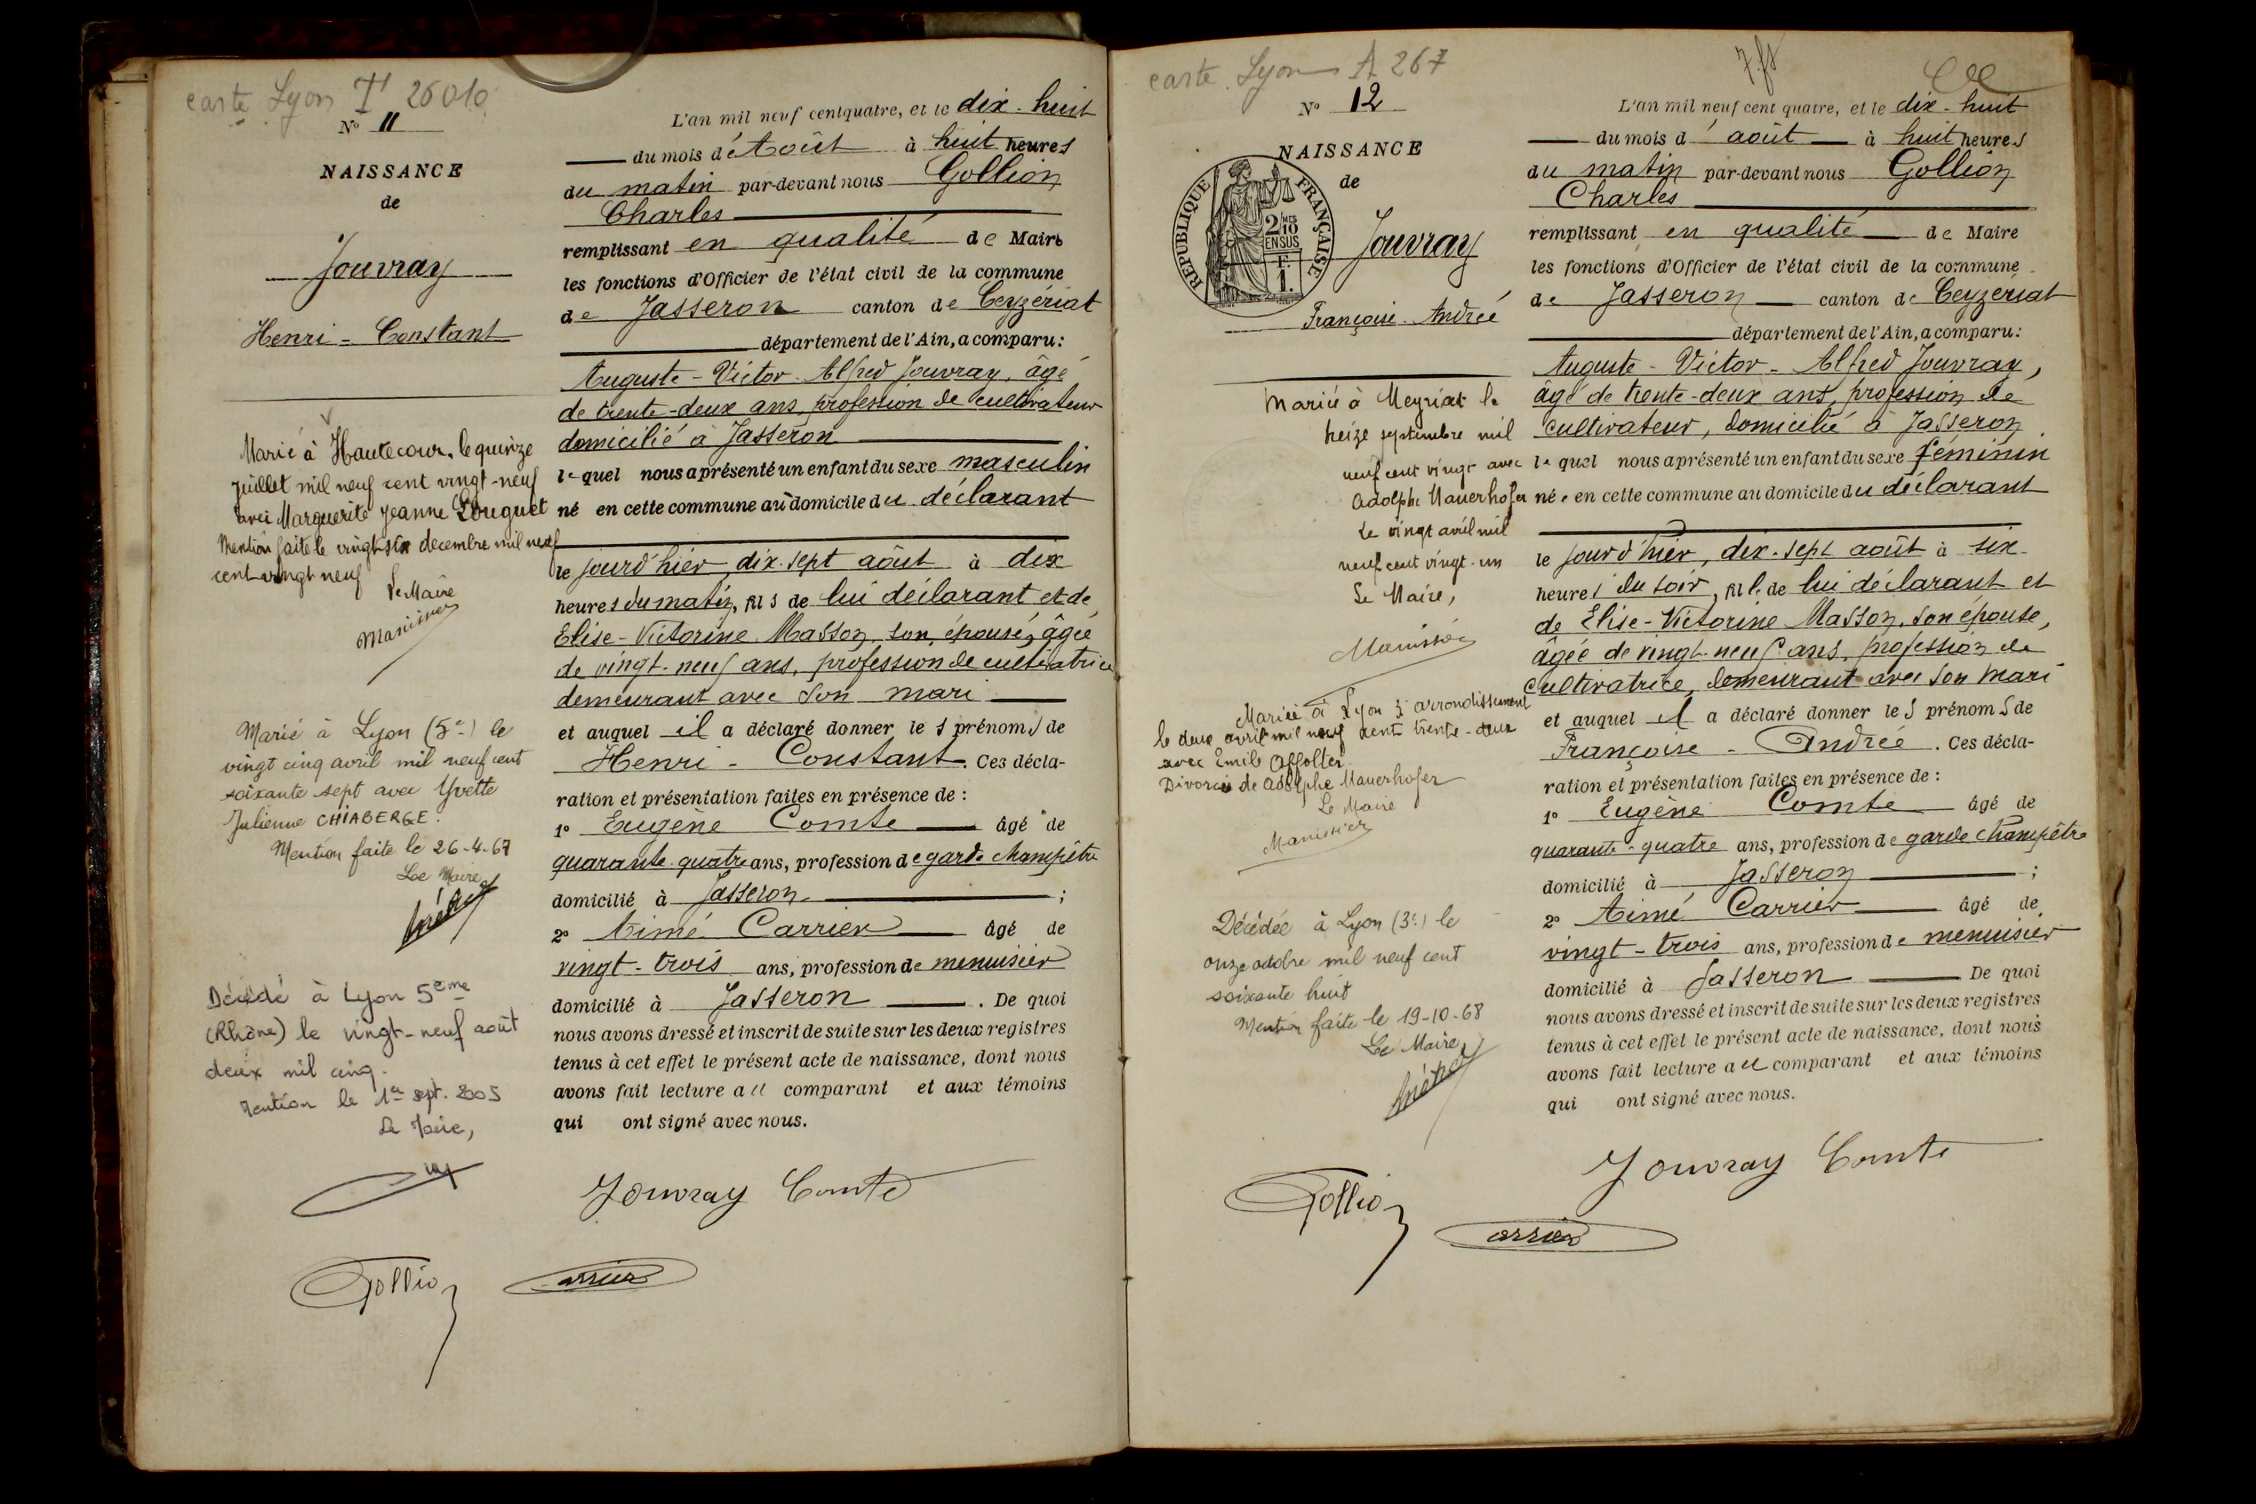 carte Lyon T 26010
N° 11
NAISSANCE
de
Jouvray
Henri - Constant
Marié à Hautecour, le quinze
juillet mil neuf cent vingt-neuf
avec Marguerite Jeanne Louguet
Mention faite le vingt six décembre mil neuf
cent vingt neuf
Le Maire
Marié à Lyon (5e) le
vingt cinq avril mil neuf cent
soixante sept avec Yvette
Julienne CHIABERGE.
Mention faite le 26-4-67
Le Maire
Décédé à Lyon 5eme
(Rhône) le vingt-neuf août
deux mil cinq.
Mention le 1er sept. 2005
Le Maire,
L'an mil neuf cent quatre, et le dix-huit
du mois d'Août à huit heures
du matin par-devant nous Gollion
Charles
remplissant en qualité de Maire
les fonctions d'Officier de l'état civil de la commune
de Jasseron canton de Ceyzériat
département de l'Ain, a comparu:
Auguste-Victor-Alfred Jouvray, âgé
de trente-deux ans, profession de cultivateur
domicilié à Jasseron
lequel nous a présenté un enfant du sexe masculin
né en cette commune au domicile du déclarant
le jourd'hier, dix-sept août à dix
heures du matin, fils de lui déclarant et de
Elise-Victorine Masson, son épouse, âgée
de vingt-neuf ans, profession de cultivatrice
demeurant avec son mari
et auquel il a déclaré donner les prénoms de
Henri - Constant. Ces décla-
ration et présentation faites en présence de:
1° Eugène Comte âgé de
quarante-quatre ans, profession de garde champêtre
domicilié à Jasseron;
2° Aimé Carrier âgé de
vingt-trois ans, profession de menuisier
domicilié à Jasseron. De quoi
nous avons dressé et inscrit de suite sur les deux registres
tenus à cet effet le présent acte de naissance, dont nous
avons fait lecture au comparant et aux témoins
qui ont signé avec nous.
Jouvray Comte
Gollion Carrier
carte Lyon A 267
N° 12
NAISSANCE
de
RÉPUBLIQUE FRANÇAISE
2/10 MES
EN SUS
F
1.
Jouvray
Françoise-Andrée
Mariée à Meyriat le
treize septembre mil
neuf cent vingt avec
Adolphe Mauerhofer
Le vingt avril mil
neuf cent vingt-un
Le Maire,
Mariée à Lyon 3e arrondissement
le deux avril mil neuf cent trente-deux
avec Emile Affolter
Divorcée de Adolphe Mauerhofer
Le Maire
Décédée à Lyon (3e) le
onze octobre mil neuf cent
soixante huit
Mention faite le 19-10-68
Le Maire
L'an mil neuf cent quatre, et le dix-huit
du mois d'août à huit heures
du matin par-devant nous Gollion
Charles
remplissant en qualité de Maire
les fonctions d'Officier de l'état civil de la commune
de Jasseron canton de Ceyzériat
département de l'Ain, a comparu:
Auguste-Victor-Alfred Jouvray,
âgé de trente-deux ans, profession de
cultivateur, domicilié à Jasseron
lequel nous a présenté un enfant du sexe féminin
née en cette commune au domicile du déclarant
le jourd'hier, dix-sept août à six
heures du soir, fille de lui déclarant et
de Elise-Victorine Masson, son épouse,
âgée de vingt-neuf ans, profession de
cultivatrice, demeurant avec son mari
et auquel il a déclaré donner les prénoms de
Françoise-Andrée. Ces décla-
ration et présentation faites en présence de:
1° Eugène Comte âgé de
quarante-quatre ans, profession de garde champêtre
domicilié à Jasseron;
2° Aimé Carrier âgé de
vingt-trois ans, profession de menuisier
domicilié à Jasseron De quoi
nous avons dressé et inscrit de suite sur les deux registres
tenus à cet effet le présent acte de naissance, dont nous
avons fait lecture au comparant et aux témoins
qui ont signé avec nous.
Jouvray Comte
Gollion Carrier